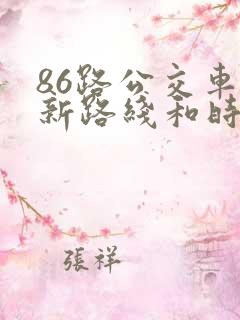 86路公交車
新路綫和時
張祥